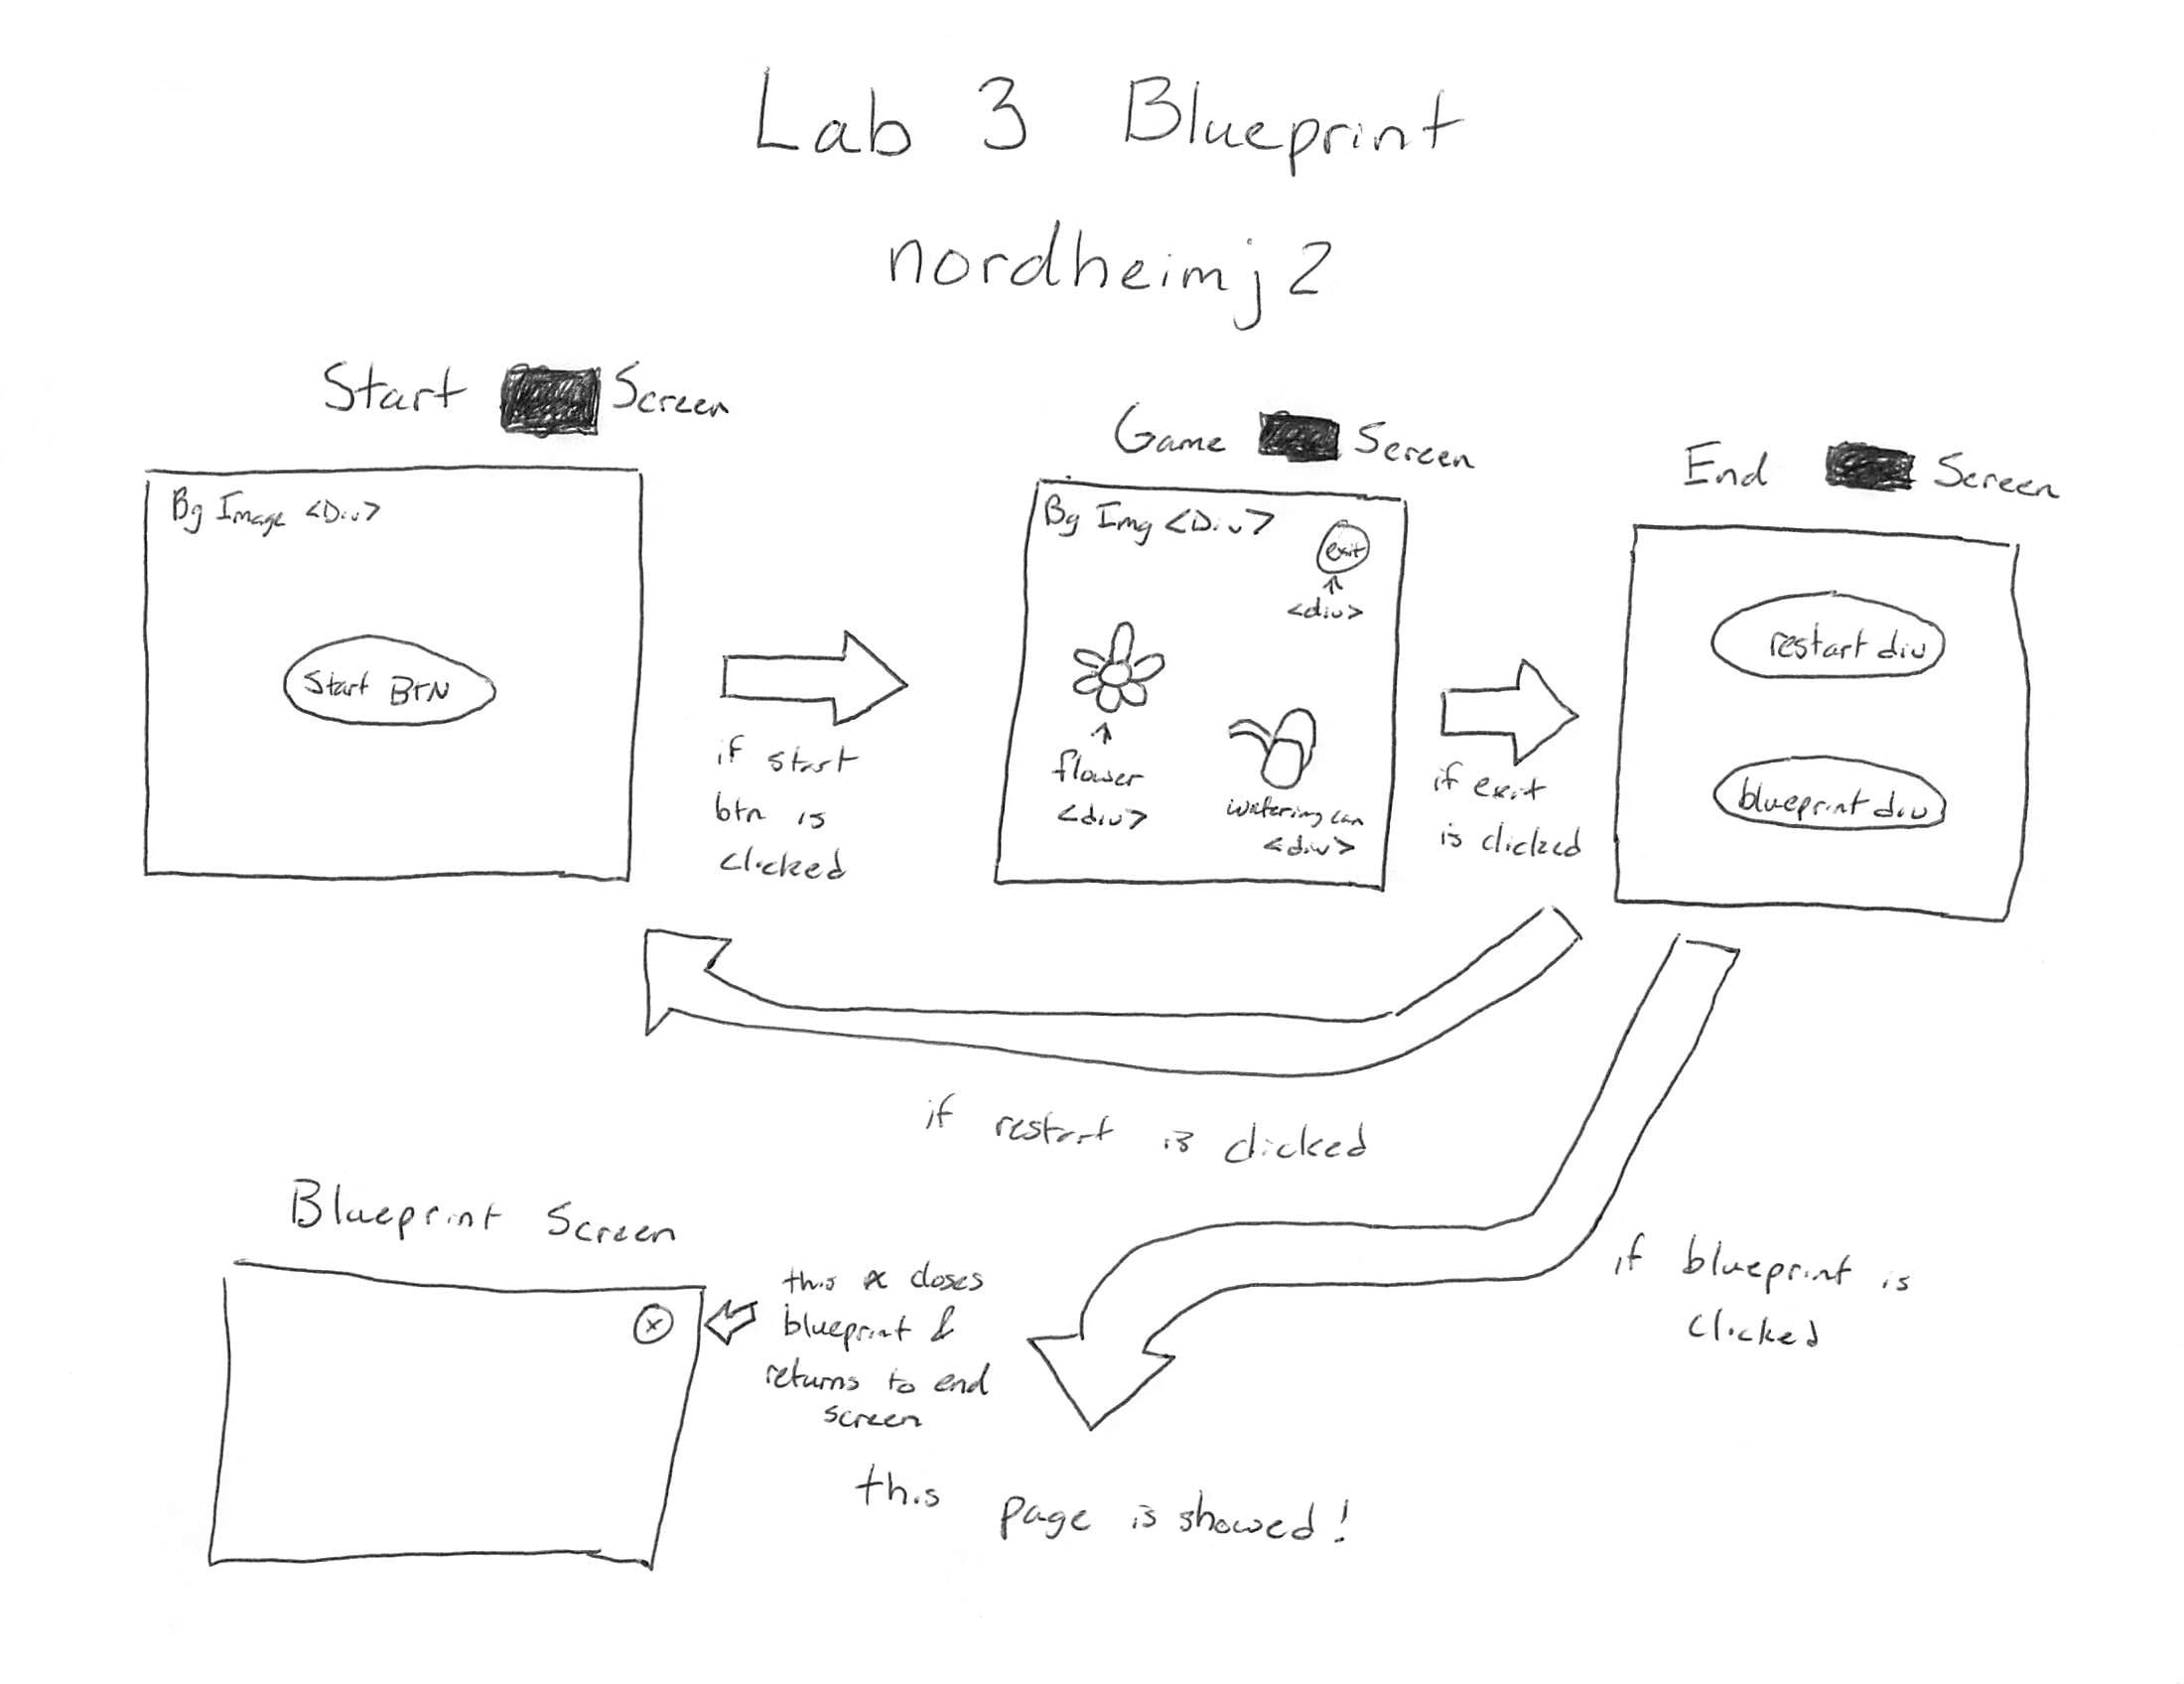 Lab 3 Blueprint
nordheimj2
Start Screen
Bg Image <Div>
Start BTN
if start
btn is
clicked
Game Screen
Bg Img <Div>
exit
<div>
flower
<div>
watering can
<div>
if exit
is clicked
End Screen
restart div
blueprint div
if restart is clicked
if blueprint is
clicked
Blueprint Screen
x
this x closes
blueprint &
returns to end
screen
this page is showed!